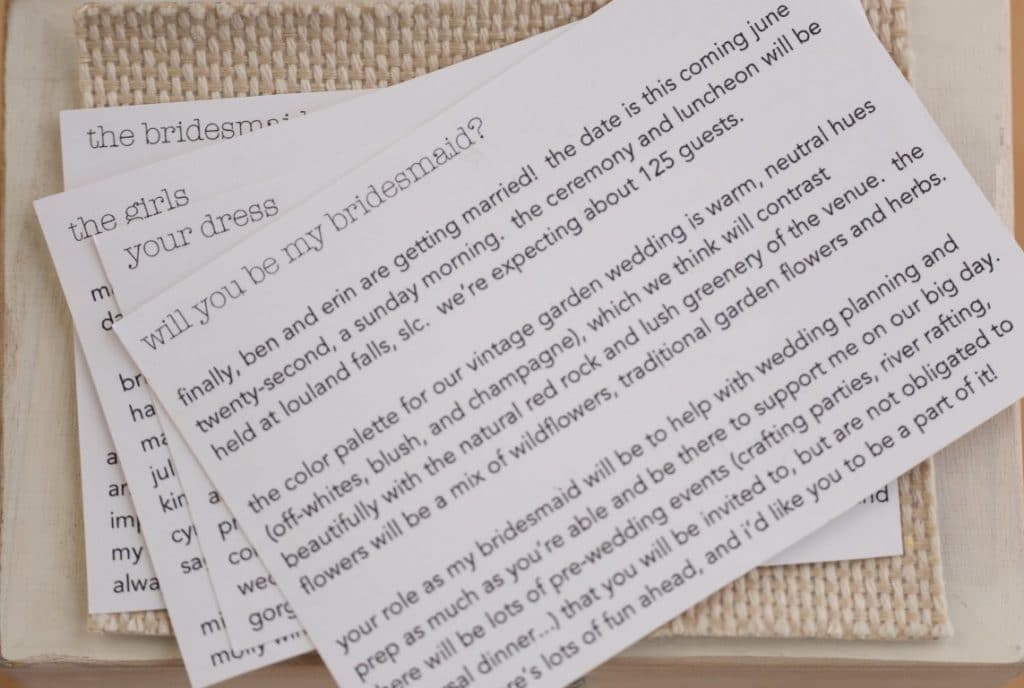 the bridesmaid
the girls
your dress
will you be my bridesmaid?
finally, ben and erin are getting married! the date is this coming june
twenty-second, a sunday morning. the ceremony and luncheon will be
held at louland falls, slc. we're expecting about 125 guests.
the color palette for our vintage garden wedding is warm, neutral hues
(off-whites, blush, and champagne), which we think will contrast
beautifully with the natural red rock and lush greenery of the venue. the
flowers will be a mix of wildflowers, traditional garden flowers and herbs.
your role as my bridesmaid will be to help with wedding planning and
prep as much as you're able and be there to support me on our big day.
here will be lots of pre-wedding events (crafting parties, river rafting,
sal dinner...) that you will be invited to, but are not obligated to
re's lots of fun ahead, and i'd like you to be a part of it!
my
alwa
br
ha
ma
jul
kin
cy
sa
mi
molly
a
pr
co
wed
gorg